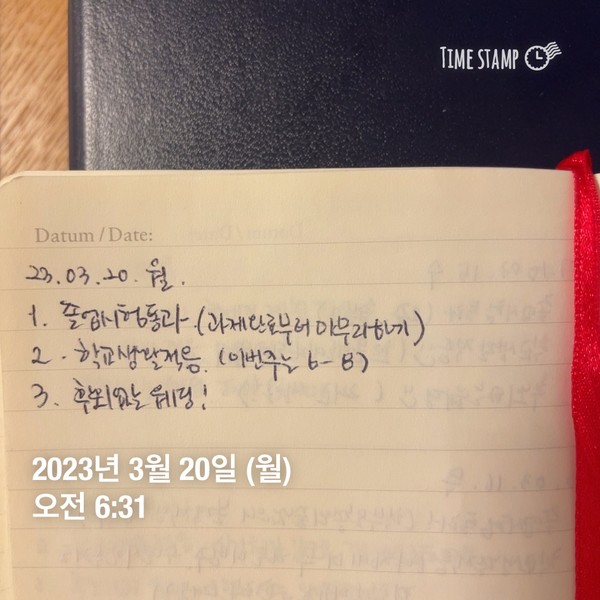 TIME STAMP
Datum / Date:
23.03.20. 월.
1. 졸업시험통과. (과제안로부터 마무리하기)
2. 학교생활적응. (이번주는 6-8)
3. 후회없는 웨딩!
2023년 3월 20일 (월)
오전 6:31